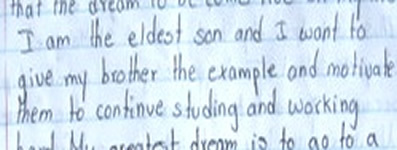 that the dream to be come
I am the eldest son and I want to
give my brother the example and motivate
them to continue studing and working
hard My greatest dream is to go to a